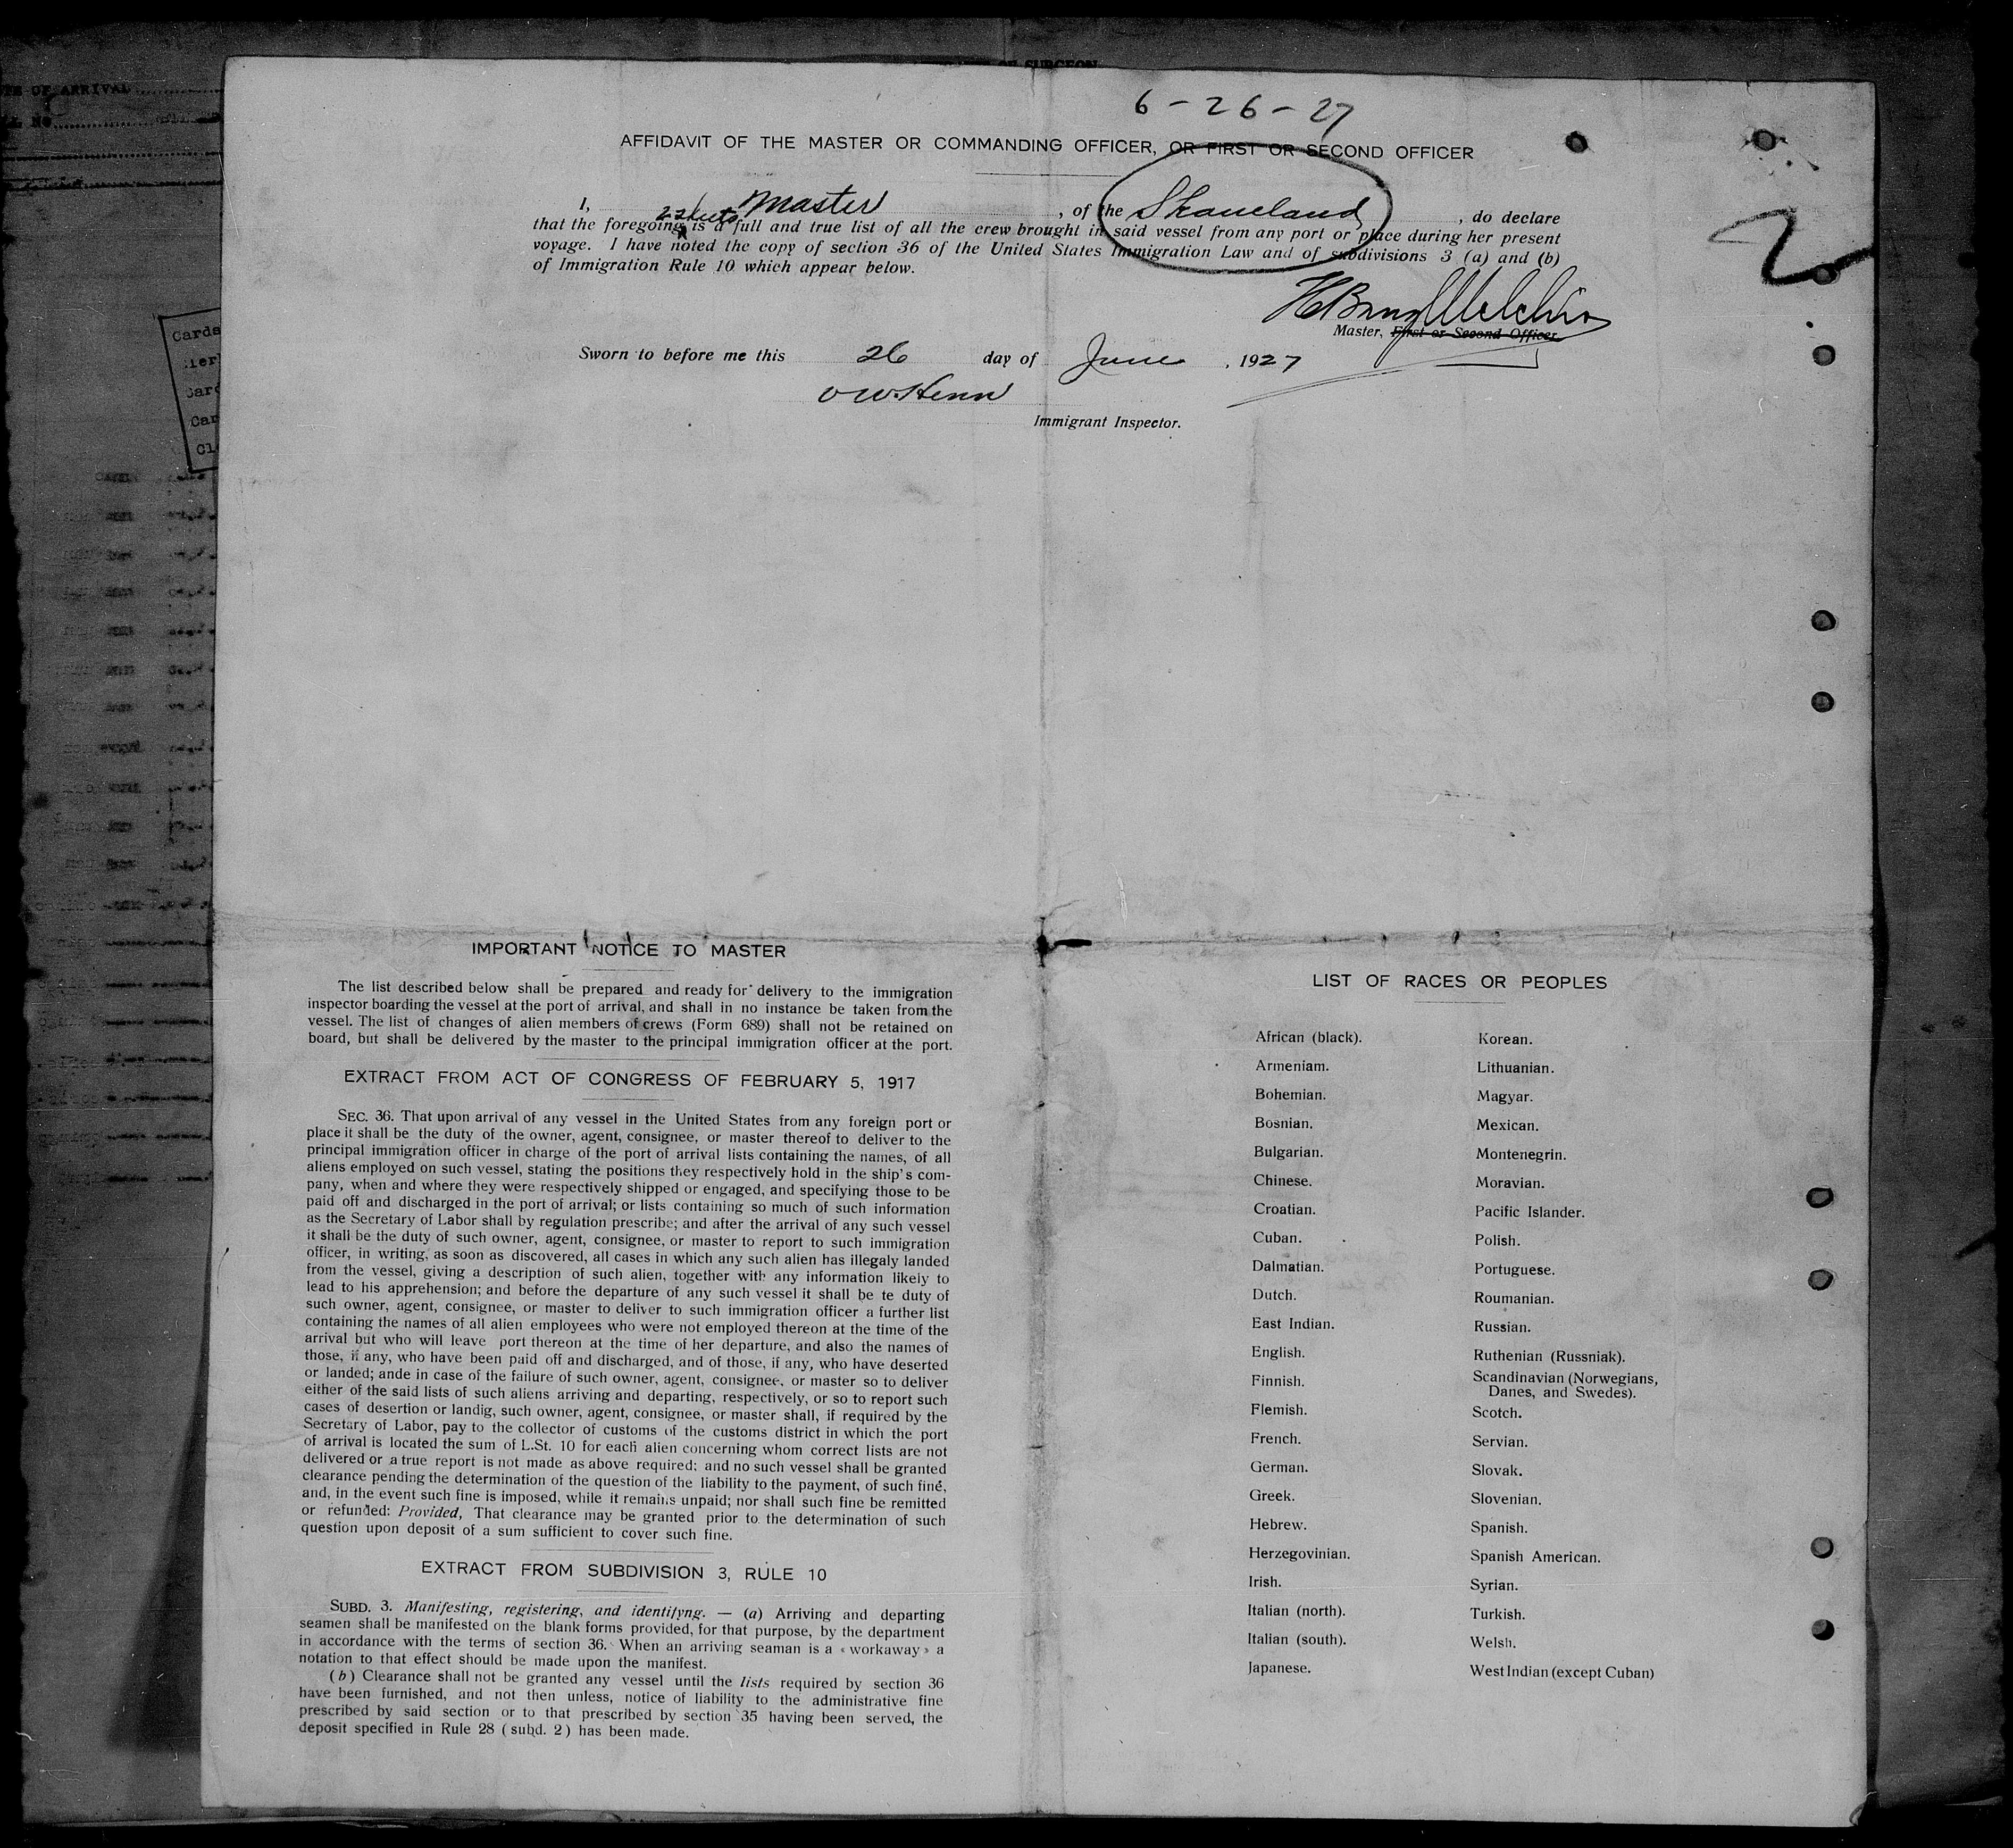 OF SURGEON
OF ARRIVAL
6-26-27
AFFIDAVIT OF THE MASTER OR COMMANDING OFFICER, OR FIRST OR SECOND OFFICER
I, Master, of the Skaneland, do declare
2 sheets
that the foregoing is a full and true list of all the crew brought in said vessel from any port or place during her present
voyage. I have noted the copy of section 36 of the United States Immigration Law and of subdivisions 3 (a) and (b)
of Immigration Rule 10 which appear below.
2
Master, First or Second Officer.
Sworn to before me this 26 day of June, 1927
O W Henn
Immigrant Inspector.
Cards
IMPORTANT NOTICE TO MASTER
The list described below shall be prepared and ready for delivery to the immigration
inspector boarding the vessel at the port of arrival, and shall in no instance be taken from the
vessel. The list of changes of alien members of crews (Form 689) shall not be retained on
board, but shall be delivered by the master to the principal immigration officer at the port.
EXTRACT FROM ACT OF CONGRESS OF FEBRUARY 5, 1917
SEC. 36. That upon arrival of any vessel in the United States from any foreign port or
place it shall be the duty of the owner, agent, consignee, or master thereof to deliver to the
principal immigration officer in charge of the port of arrival lists containing the names, of all
aliens employed on such vessel, stating the positions they respectively hold in the ship's com-
pany, when and where they were respectively shipped or engaged, and specifying those to be
paid off and discharged in the port of arrival; or lists containing so much of such information
as the Secretary of Labor shall by regulation prescribe; and after the arrival of any such vessel
it shall be the duty of such owner, agent, consignee, or master to report to such immigration
officer, in writing, as soon as discovered, all cases in which any such alien has illegaly landed
from the vessel, giving a description of such alien, together with any information likely to
lead to his apprehension; and before the departure of any such vessel it shall be te duty of
such owner, agent, consignee, or master to deliver to such immigration officer a further list
containing the names of all alien employees who were not employed thereon at the time of the
arrival but who will leave port thereon at the time of her departure, and also the names of
those, if any, who have been paid off and discharged, and of those, if any, who have deserted
or landed; ande in case of the failure of such owner, agent, consignee, or master so to deliver
either of the said lists of such aliens arriving and departing, respectively, or so to report such
cases of desertion or landig, such owner, agent, consignee, or master shall, if required by the
Secretary of Labor, pay to the collector of customs of the customs district in which the port
of arrival is located the sum of L.St. 10 for each alien concerning whom correct lists are not
delivered or a true report is not made as above required; and no such vessel shall be granted
clearance pending the determination of the question of the liability to the payment, of such fine,
and, in the event such fine is imposed, while it remains unpaid; nor shall such fine be remitted
or refunded: Provided, That clearance may be granted prior to the determination of such
question upon deposit of a sum sufficient to cover such fine.
EXTRACT FROM SUBDIVISION 3, RULE 10
SUBD. 3. Manifesting, registering, and identifyng. — (a) Arriving and departing
seamen shall be manifested on the blank forms provided, for that purpose, by the department
in accordance with the terms of section 36. When an arriving seaman is a « workaway » a
notation to that effect should be made upon the manifest.
(b) Clearance shall not be granted any vessel until the lists required by section 36
have been furnished, and not then unless, notice of liability to the administrative fine
prescribed by said section or to that prescribed by section 35 having been served, the
deposit specified in Rule 28 (subd. 2) has been made.
LIST OF RACES OR PEOPLES
African (black).
Armeniam.
Bohemian.
Bosnian.
Bulgarian.
Chinese.
Croatian.
Cuban.
Dalmatian.
Dutch.
East Indian.
English.
Finnish.
Flemish.
French.
German.
Greek.
Hebrew.
Herzegovinian.
Irish.
Italian (north).
Italian (south).
Japanese.
Korean.
Lithuanian.
Magyar.
Mexican.
Montenegrin.
Moravian.
Pacific Islander.
Polish.
Portuguese.
Roumanian.
Russian.
Ruthenian (Russniak).
Scandinavian (Norwegians,
Danes, and Swedes).
Scotch.
Servian.
Slovak.
Slovenian.
Spanish.
Spanish American.
Syrian.
Turkish.
Welsh.
West Indian (except Cuban)